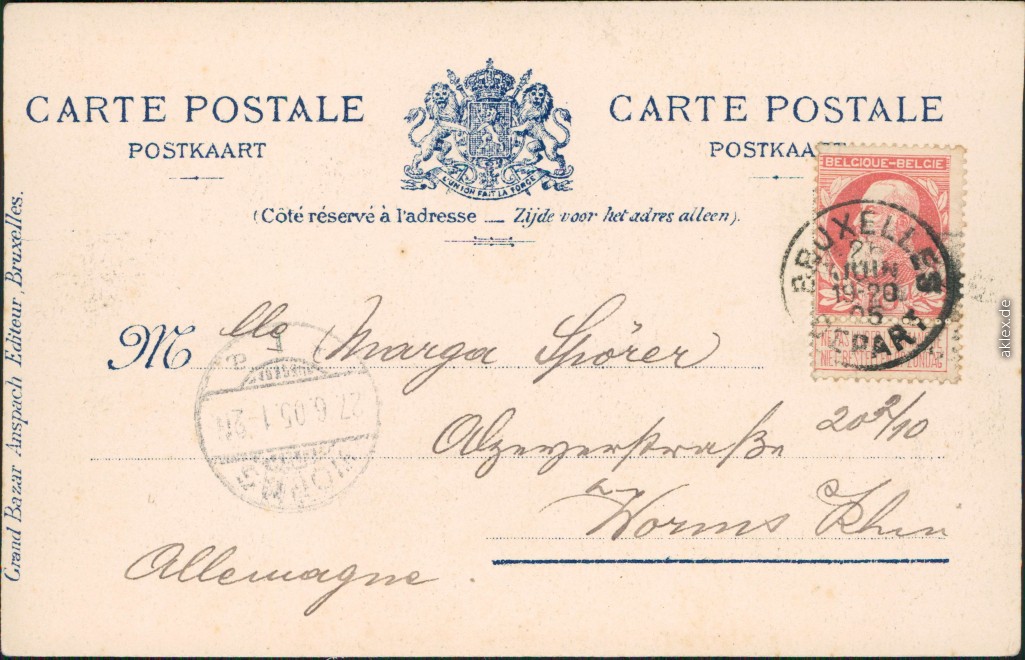 CARTE POSTALE
POSTKAART
L'UNION FAIT LA FORCE
CARTE POSTALE
POSTKAART
(Côté réservé à l'adresse — Zijde voor het adres alleen).
BELGIQUE-BELGIE
BRUXELLES
JUIN
19-20
05
DEPART
Mlle Marga Spörer
Alzeyerstraße 20 2/10
Worms Rhein
Allemagne.
WORMS
27.6.05.1-2N
Grand Bazar Anspach Editeur, Bruxelles.
aklex.de